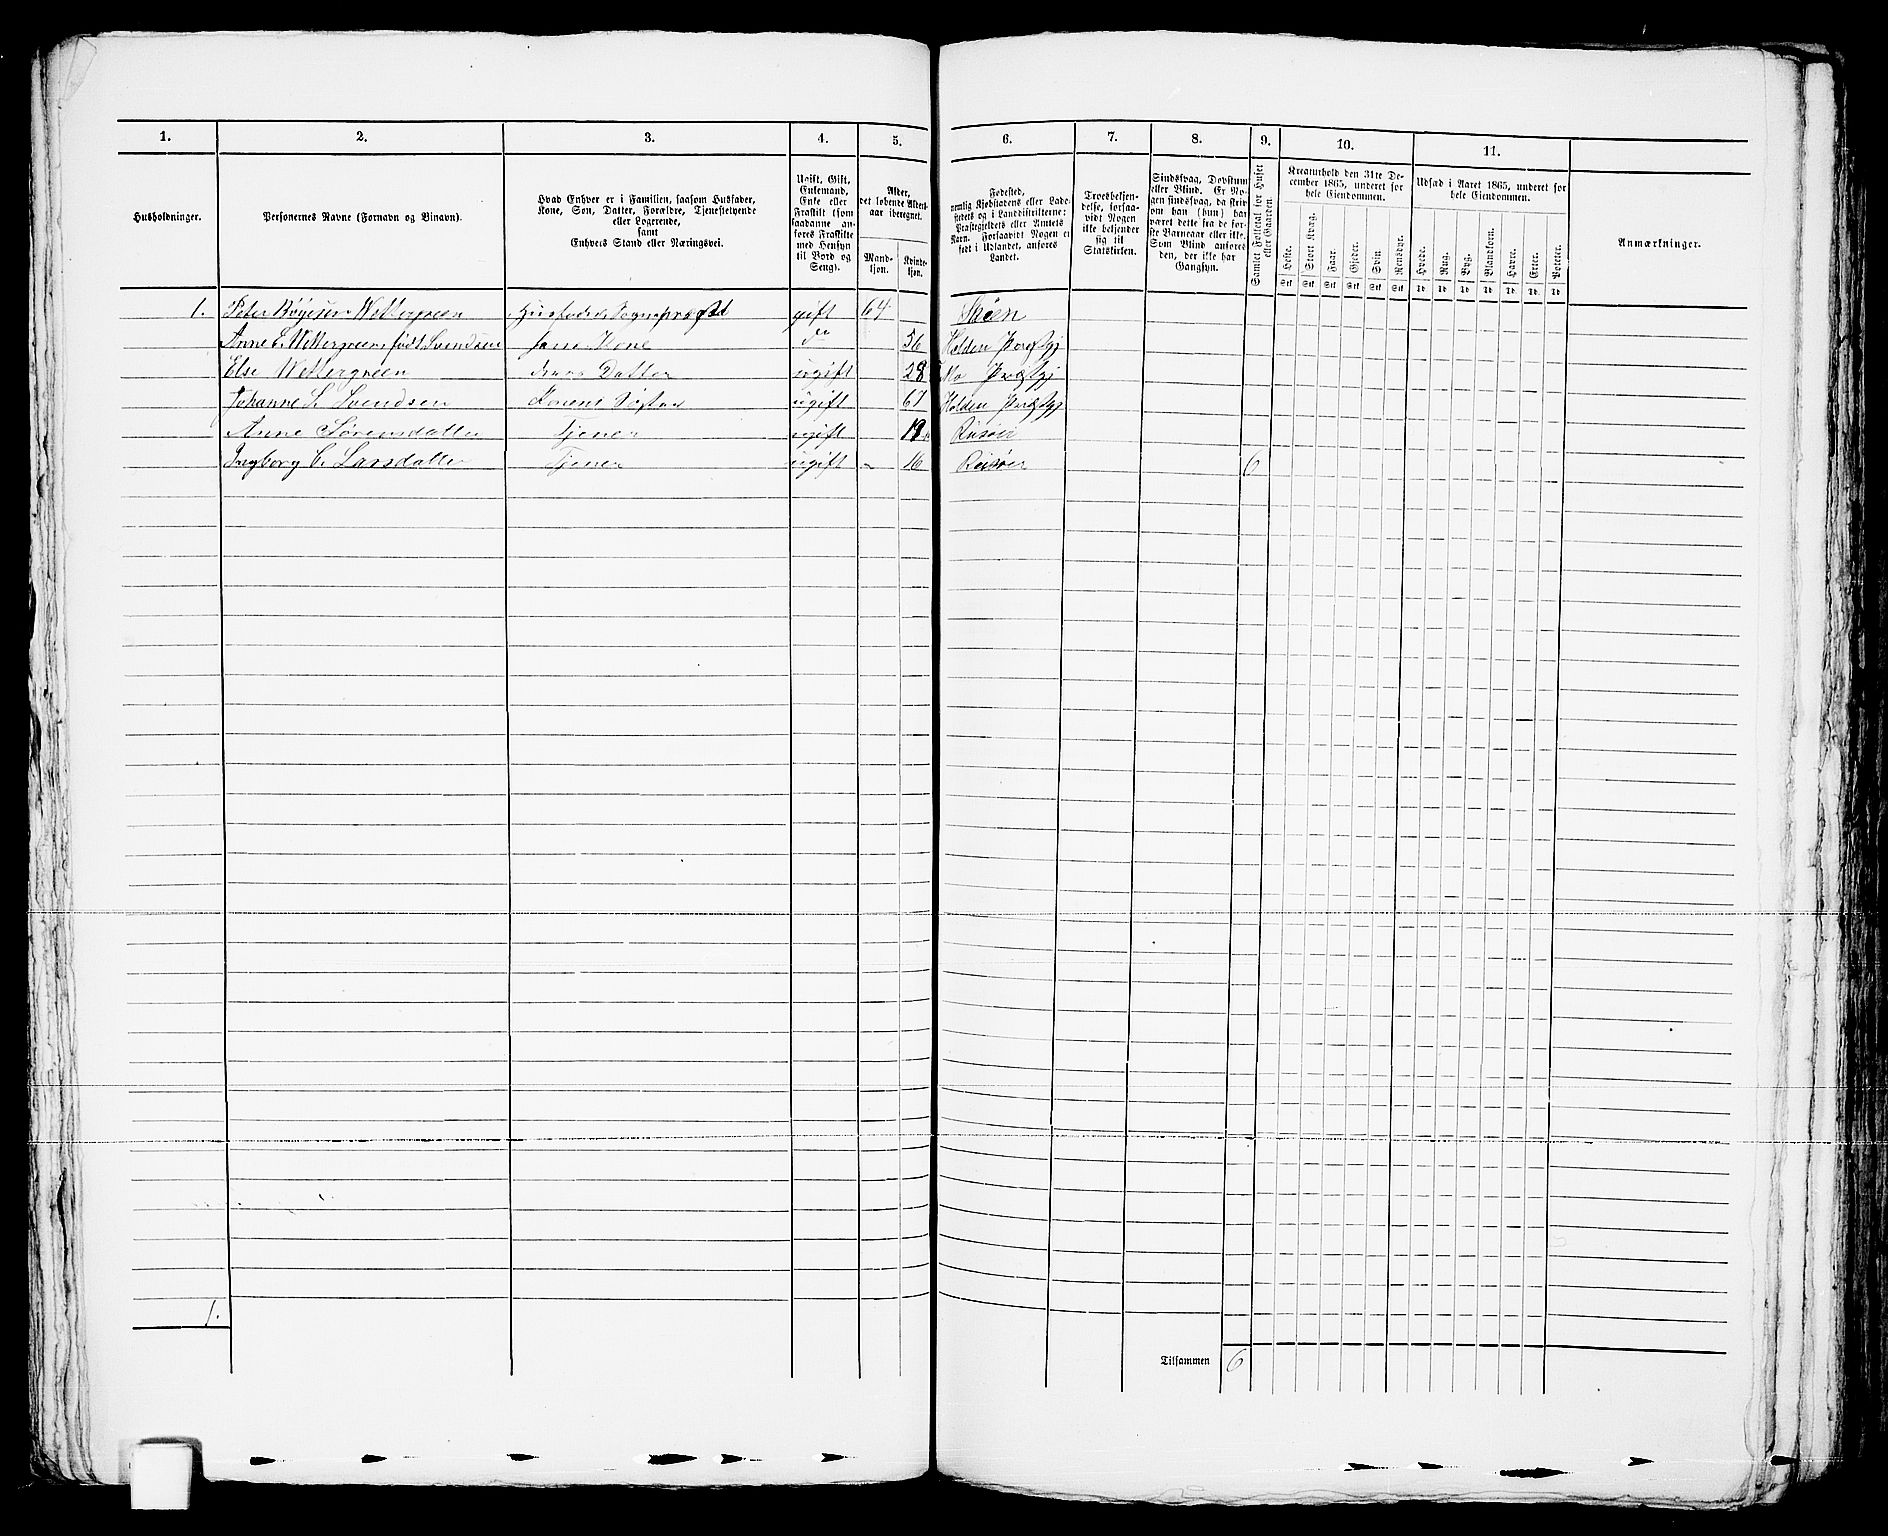 1. 2. 3. 4. 5. 6. 7. 8. 9. 10. 11.
Husholdninger.
Personernes Navne (Fornavn og Binavn).
Hvad Enhver er i Familien, saasom Husfader,
Kone, Søn, Datter, Forældre, Tjenestetyende
eller Logerende,
samt
Enhvers Stand eller Næringsvei.
Ugift, Gift,
Enkemand,
Enke eller
Fraskilt (som
saadanne an-
føres Fraskilte
med Hensyn
til Bord og
Seng).
Alder,
det løbende Alders-
aar iberegnet.
Mand-
kjøn.
Kvinde-
kjøn.
Fødested,
nemlig Kjøbstadens eller Lade-
stedets og i Landdistrikterne:
Præstegjeldets eller Amtets
Navn. Forsaavidt Nogen er
født i Udlandet, anføres
Landet.
Troesbekjen-
delse, forsaa-
vidt Nogen
ikke bekjender
sig til
Statskirken.
Sindssvag, Døvstum
eller Blind. Er No-
gen sindssvag, da skriv
om han (hun) har
været dette fra de før-
ste Barneaar eller ikke.
Som Blind anføres
den, der ikke har
Gangsyn.
Samlet Folketal for Huset
eller Gaarden.
Kreaturhold den 31te De-
cember 1865, underet for
hele Eiendommen.
Heste. Stort Kvæg. Faar. Gjeder. Svin. Rensdyr.
Stk Stk Stk Stk Stk Stk
Udsæd i Aaret 1865, underet for
hele Eiendommen.
Hvede. Rug. Byg. Blandkorn. Havre. Erter. Poteter.
Td Td Td Td Td Td Td
Anmærkninger.
1. Peter Wettergreen Husfader, Sognepræst gift 64 Skien
Anne S. Wettergreen, født Svendsen hans Kone do 56 Holden Præstgj
Else Wettergreen deres Datter ugift 28 Mo Præstgj
Johanne S. Svendsen Konens Søster ugift 67 Holden Præstgj
Anne Sørensdatter Tjener ugift 19 Risøer
Ingborg C. Larsdatter Tjener ugift 16 Risøer 6
1.
Tilsammen 6